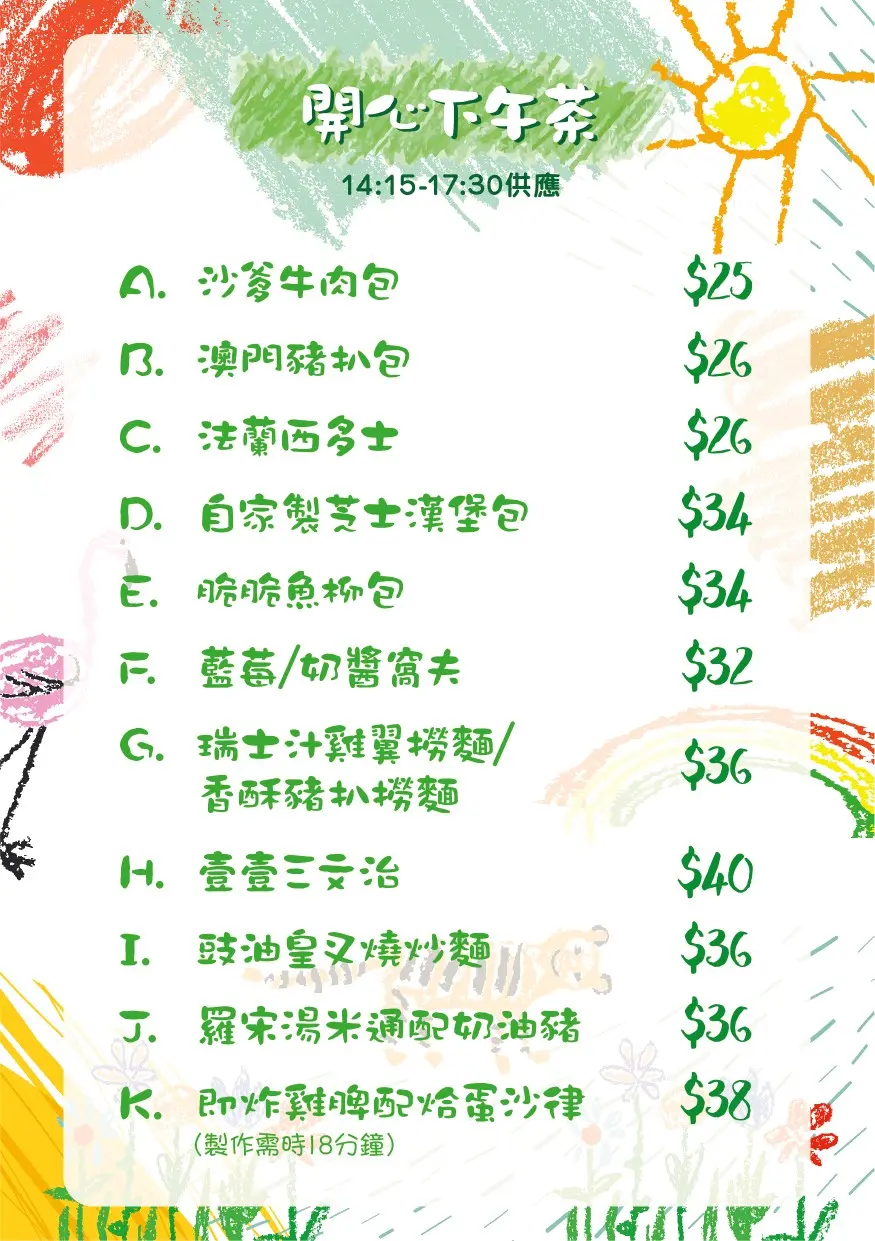 開心下午茶
14:15-17:30供應
A. 沙爹牛肉包 $25
B. 澳門豬扒包 $26
C. 法蘭西多士 $26
D. 自家製芝士漢堡包 $34
E. 脆脆魚柳包 $34
F. 藍莓/奶醬窩夫 $32
G. 瑞士汁雞翼撈麵/
香酥豬扒撈麵 $36
H. 壹壹三文治 $40
I. 豉油皇叉燒炒麵 $36
J. 羅宋湯米通配奶油豬 $36
K. 即炸雞脾配焓蛋沙律 $38
(製作需時18分鐘)